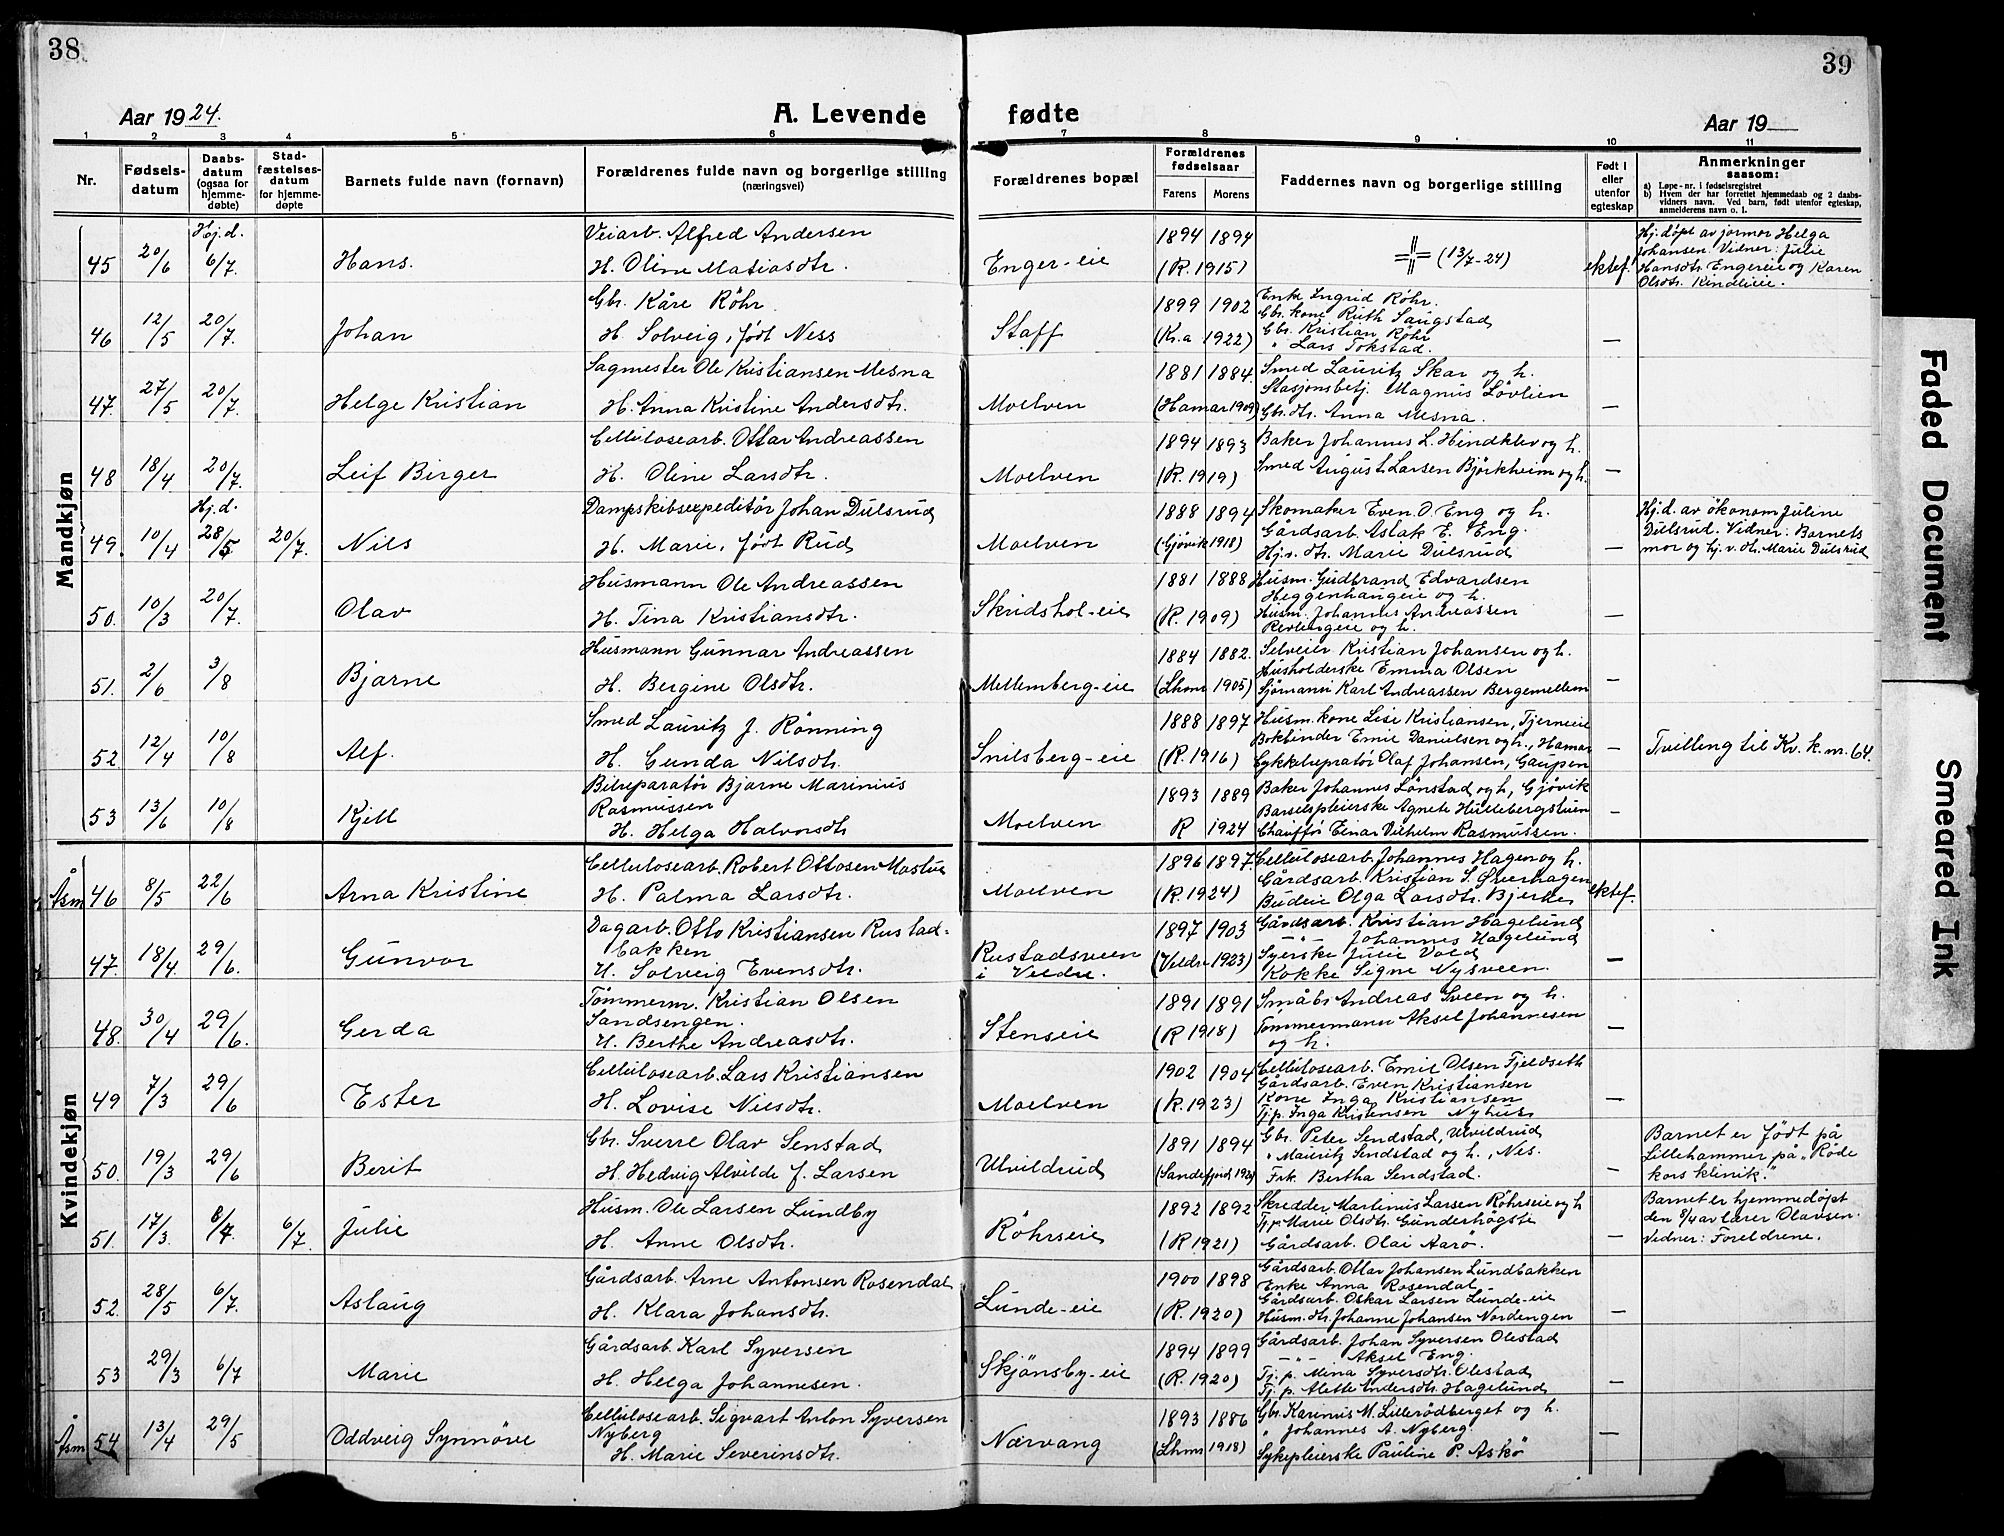 38
39
Aar 1924.
A. Levende
fødte
Aar 19
1 2 3 4 5 6 7 8 9 10 11
Nr.
Fødsels-
datum
Daabs-
datum
(ogsaa for
hjemme-
døbte)
Stad-
fæstelses-
datum
for hjemme-
døpte
Barnets fulde navn (fornavn)
Forældrenes fulde navn og borgerlige stilling
(næringsvei)
Forældrenes bopæl
Forældrenes
fødselsaar
Farens
Morens
Faddernes navn og borgerlige stilling
Født i
eller
utenfor
egteskap
Anmerkninger
saasom:
a) Løpe-nr. i fødselsregistret
b) Hvem der har forrettet hjemmedaab og 2 daabs-
vidners navn. Ved barn, født utenfor egteskap,
anmelderens navn o. l.
Mandkjøn
45 20/6 Hj.d. 6/7. Hans.
Veiarb. Alfred Andersen
H. Oline Matiasdtr.
Enger-eie
1894 1894
(R. 1915)
(13/7-24)
ektef.
Hj.døpt av jormor Helga
Johansen. Vidner: Julie
Hansdtr. Engereie og Karen
Olsdtr. Kindlieie.
46 12/5 20/7. Johan
Gbr. Kåre Röhr.
H. Solveig, født Ness
Staff
1899 1902
(Kr.a 1922)
Enke Ingrid Röhr.
Gbr. kone Ruth Saugstad
Gbr. Kristian Röhr
" Lars Tokstad.
—
47. 27/5 20/7. Helge Kristian
Sagmester Ole Kristiansen Mesna
H. Anna Kristine Andersdtr.
Moelven
1881 1884.
(Hamar 1909)
Smed Lauritz Skar og h.
Stasjonsbetj. Magnus Lövlien
Gbr. dtr. Anna Mesna.
—
48 18/4 20/7. Leif Birger
Cellulosearb. Ottar Andreassen
H. Oline Larsdtr.
Moelven
1894 1893
(R. 1919)
Baker Johannes L. Hendklev og h.
Smed August Larsen Björkheim og h.
—
49. 10/4 Hj.d. 28/5 20/7. Nils
Dampskibsexpeditör Johan Dulsrud
H. Marie, født Rud
Moelven
1888 1894
(Gjøvik 1918)
Skomaker Even O. Eng og h.
Gårdsarb. Aslak E. Eng.
Hj.v. dtr. Marie Dulsrud
—
Hj.d. av økonom Juline
Dulsrud. Vidner: Barnets
mor og hj.v. dtr. Marie Dulsrud
50. 10/3 20/7. Olav
Husmann Ole Andreassen
H. Tina Kristiansdtr.
Skridshol-eie
1881 1888
(R. 1909)
Husm. Gudbrand Edvardsen
Heggenhaugeie og h.
Husm. Johannes Andreassen
Revlingeie og h.
—
51. 2/6 3/8 Bjarne
Husmann Gunnar Andreassen
H. Bergine Olsdtr.
Mellemberg-eie
1884 1882.
(Lhmr 1905)
Selveier Kristian Johansen og h.
Husholderske Emma Olsen
Sjömann Karl Andreassen Bergemellem
—
52 12/4 10/8 Alf.
Smed Lauritz J. Rönning
H. Gunda Nilsdtr.
Snilsberg-eie
1888 1897
(R. 1916)
Husm. kone Lise Kristiansen, Tjerneie
Bokbinder Emil Danielsen og h., Hamar
Cykkelrepratör Olaf Johansen, Gaupen
—
Tvilling til Kv. k. nr. 64.
53 13/6 10/8 Kjell
Bilreparatör Bjarne Marinius
Rasmussen
H. Helga Halvorsdtr
Moelven
1893 1889
R 1924
Baker Johannes Lönstad og h., Gjövik
Barselspleierske Agnete Hullebergstuen
Chaufför Einar Vilhelm Rasmussen.
—
Kvindekjøn
Åsm 46 8/5 22/6 Arna Kristine
Cellulosearb. Robert Ottosen Mostue
H. Palma Larsdtr.
Moelven
1896 1897.
(R. 1924)
Cellulosearb. Johannes Hagen og h.
Gårdsarb. Kristian S. Överhagen
Budeie Olga Larsdtr. Bjerke
ektef.
47. 18/4 29/6. Gunvor
Dagarb. Otto Kristiansen Rustad-
bakken
H. Solveig Evensdtr.
Rustadsveen
i Veldre.
1897 1903
(Veldre 1923)
Gårdsarb. Kristian Hagelund
—"— Johannes Hagelund
Syerske Julie Vold
Kokke Signe Nysveen.
—
48. 30/4 29/6. Gerda
Tømmerm. Kristian Olsen
Sandsengen.
H. Berthe Andreasdtr.
Stenseie
1891 1891
(R 1918)
Småbr. Andreas Sveen og h.
Tømmermann Aksel Johannesen
og h.
—
49 7/3 29/6 Ester
Cellulosearb. Lars Kristiansen
H. Lovise Nilsdtr.
Moelven
1902 1904
(R. 1923)
Cellulosearb. Emil Olsen Fjeldseth
Gårdsarb. Even Kristiansen
Kone Inga Kristiansen
Tj.p. Inga Kristensen Nyhus
—
50. 19/3 29/6 Berit
Gbr. Sverre Olav Senstad
H. Hedvig Alvilde f. Larsen
Ulvildrud
1891 1894
Gbr. Peter Sendstad, Ulvildrud
" Mauritz Sendstad og h., Nes.
Frk. Bertha Sendstad.
—
Barnet er født på
Lillehammer på „Røde
kors klinik."
51. 17/3 6/7. Julie
Husm. Ole Larsen Lundby
H. Anne Olsdtr.
Röhrseie
1892 1892
(R. 1921)
Skredder Martinius Larsen Röhrseie og h
Tj.p. Marie Olsdtr. Gunderhögste
Gårdsarb. Olai Aarø.
—
Barnet er hjemmedøpt
den 8/4 av lærer Olavsen.
Vidner: Foreldrene.
52. 28/5 6/7. Aslaug
Gårdsarb. Arne Antonsen Rosendal
H. Klara Johansdtr.
Lunde-eie
1900 1898
(R. 1920)
Gårdsarb. Ottar Johansen Lundbakken
Enke Anna Rosendal
Gårdsarb. Oskar Larsen Lunde-eie
Husm. dtr. Johanne Johansen Nordengen
—
53 29/3 6/7 Marie
Gårdsarb. Karl Syversen
H. Helga Johannesen.
Skjönsby-eie
1894 1899
(R. 1920)
Gårdsarb. Johan Syversen Olestad
—"— Aksel Eng.
Tj. p. Mina Syversdtr. Olestad
Tj. p. Alette Andersdtr. Hagelund
—
Åsm 54 13/4 29/5 Oddveig Synnöve
Cellulosearb. Sigvart Anton Syversen
Nyberg
H. Marie Severinsdtr.
Nærvang
1893 1886
(Lhmr 1918)
Gbr. Karinius M. Lillerödberget og h.
" Johannes A. Nyberg.
Sykepleierske Pauline P. Askö
—
Faded Document
Smeared Ink